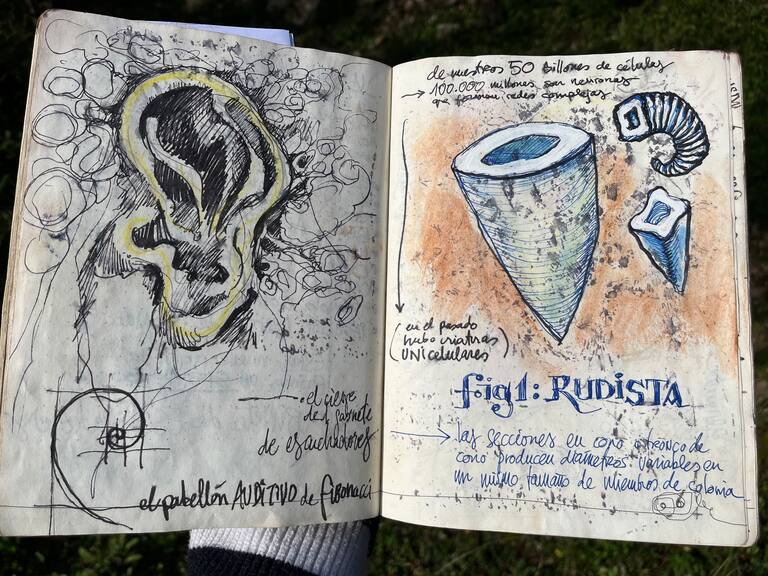 el cierre
del gabinete
de escuchadores
el pabellón AUDITIVO de Fibonacci
de nuestros 50 billones de células
→ 100.000 millones son neuronas
que forman redes complejas
(en el pasado
hubo criaturas
UNICELULARES)
fig1: RUDISTA
→ las secciones en cono o tronco de
cono producen diámetros variables en
un mismo tamaño de miembros de colonia